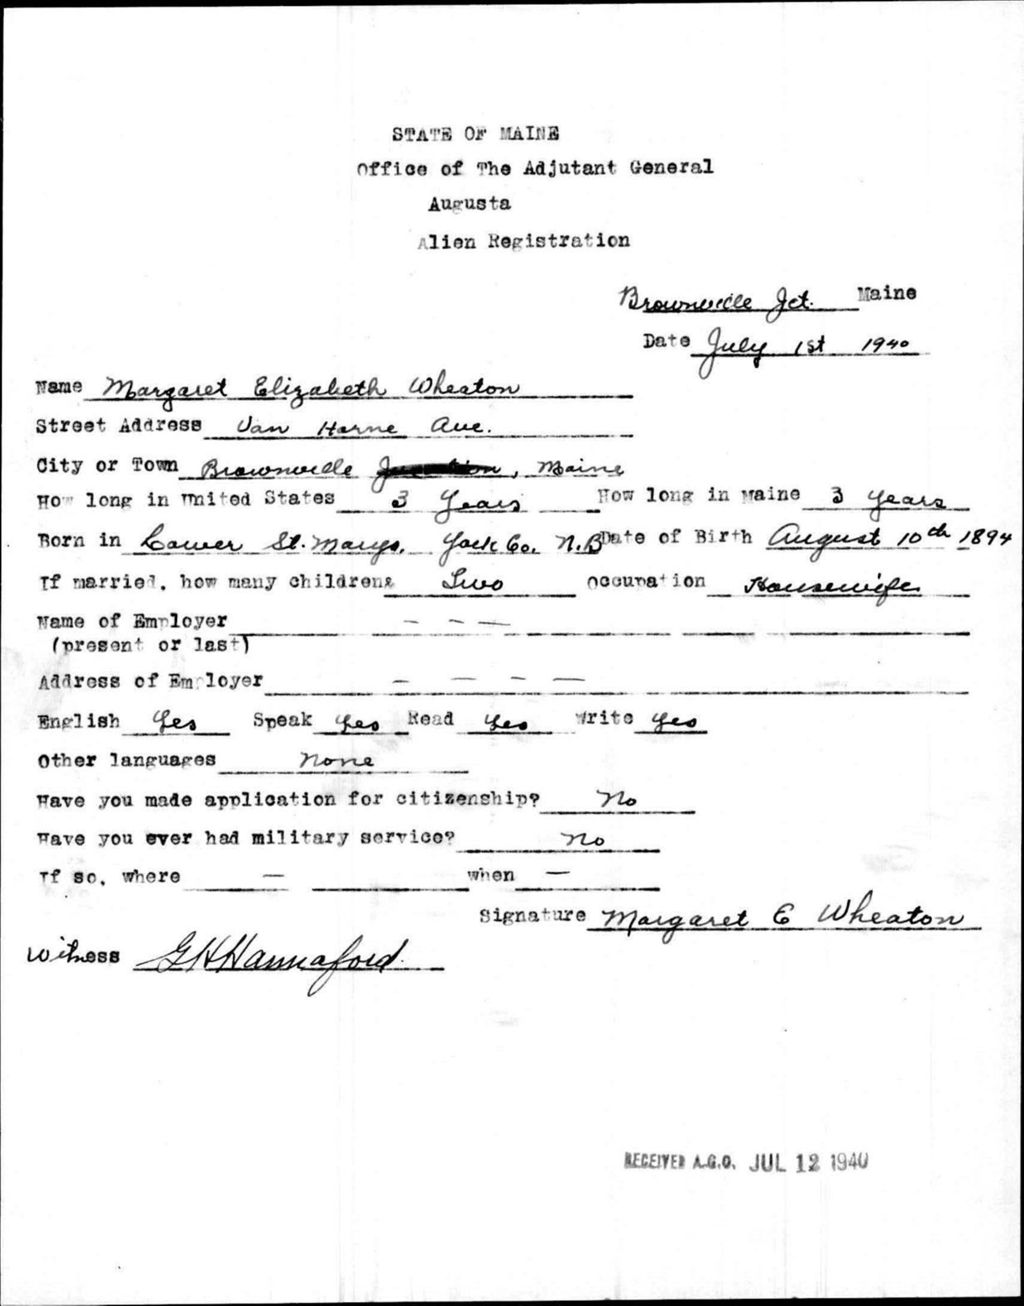 STATE OF MAINE
Office of The Adjutant General
Augusta
Alien Registration
Brownville Jct. Maine
Date July 1st 1940
Name Margaret Elizabeth Wheaton
Street Address Van Horne Ave.
City or Town Brownville Junction, Maine
How long in United States 3 Years How long in Maine 3 Years
Born in Lower St. Marys, York Co. N.B Date of Birth August 10th 1894
If married, how many children Two Occupation Housewife
Name of Employer - - -
(present or last)
Address of Employer - - - -
English Yes Speak Yes Read Yes Write Yes
Other languages None
Have you made application for citizenship? No
Have you ever had military service? No
If so, where - when -
Signature Margaret E Wheaton
Witness G H Hannaford.
RECEIVED A.G.O. JUL 12 1940